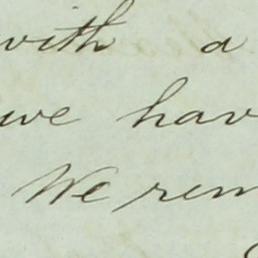 with a
we hav
We rem